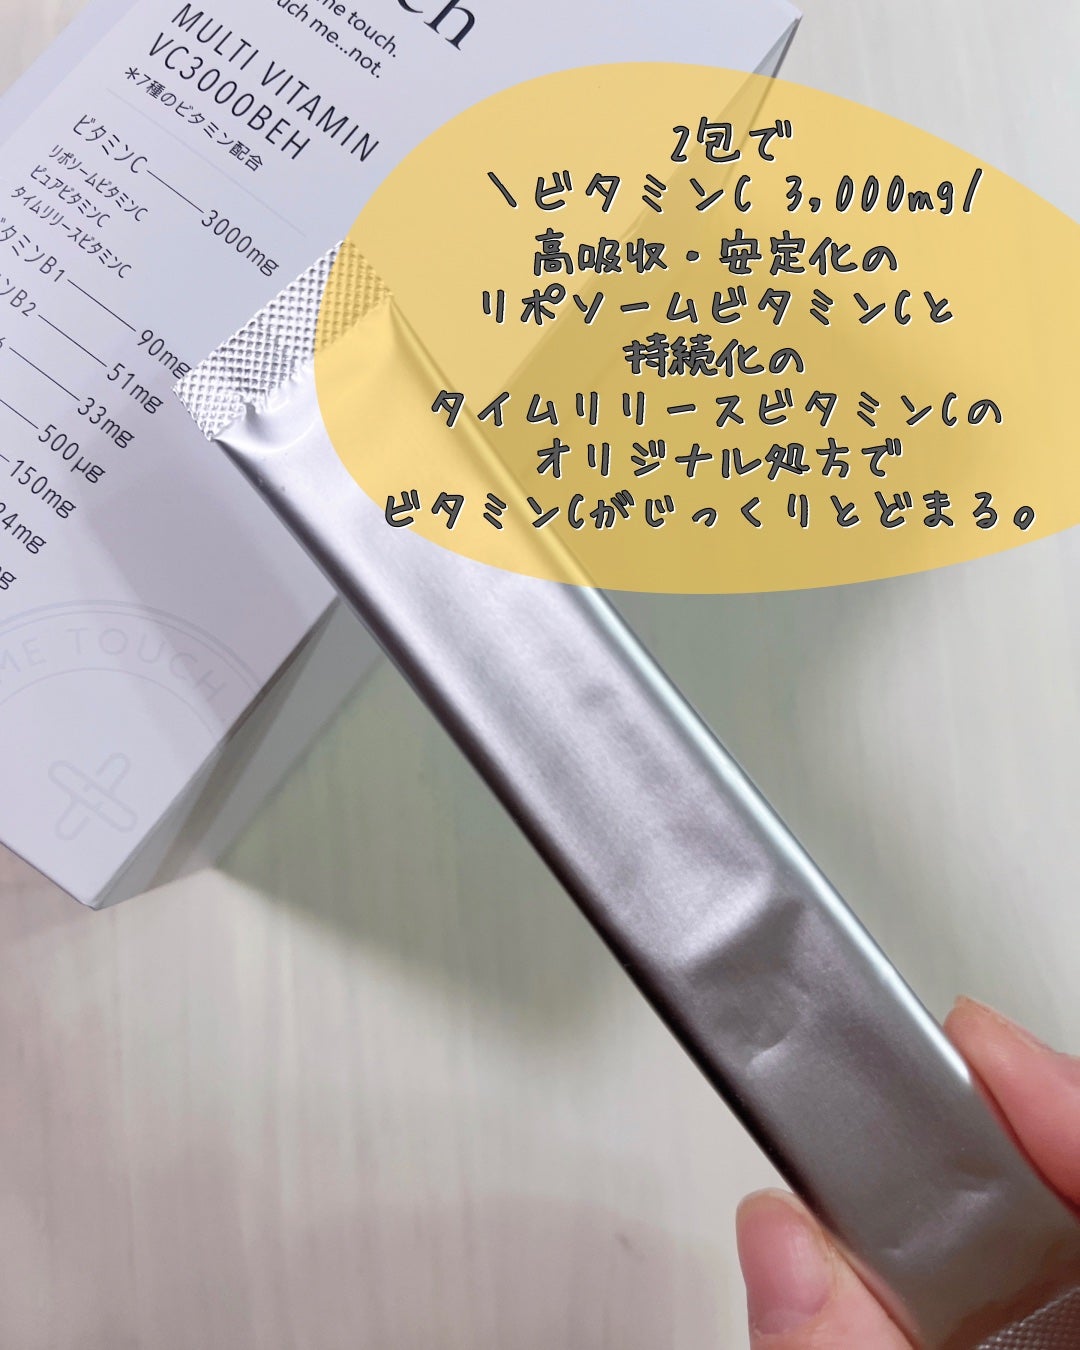 me touch.
uch me...not.
MULTI VITAMIN
VC3000BEH
*7種のビタミン配合
ビタミンC 3000mg
リポソームビタミンC
ピュアビタミンC
タイムリリースビタミンC
ビタミンB1 90mg
ンB2 51mg
33mg
500μg
150mg
24mg
mg
ME TOUCH
2包で
\ビタミンC 3,000mg/
高吸収・安定化の
リポソームビタミンCと
持続化の
タイムリリースビタミンCの
オリジナル処方で
ビタミンCがじっくりとどまる。